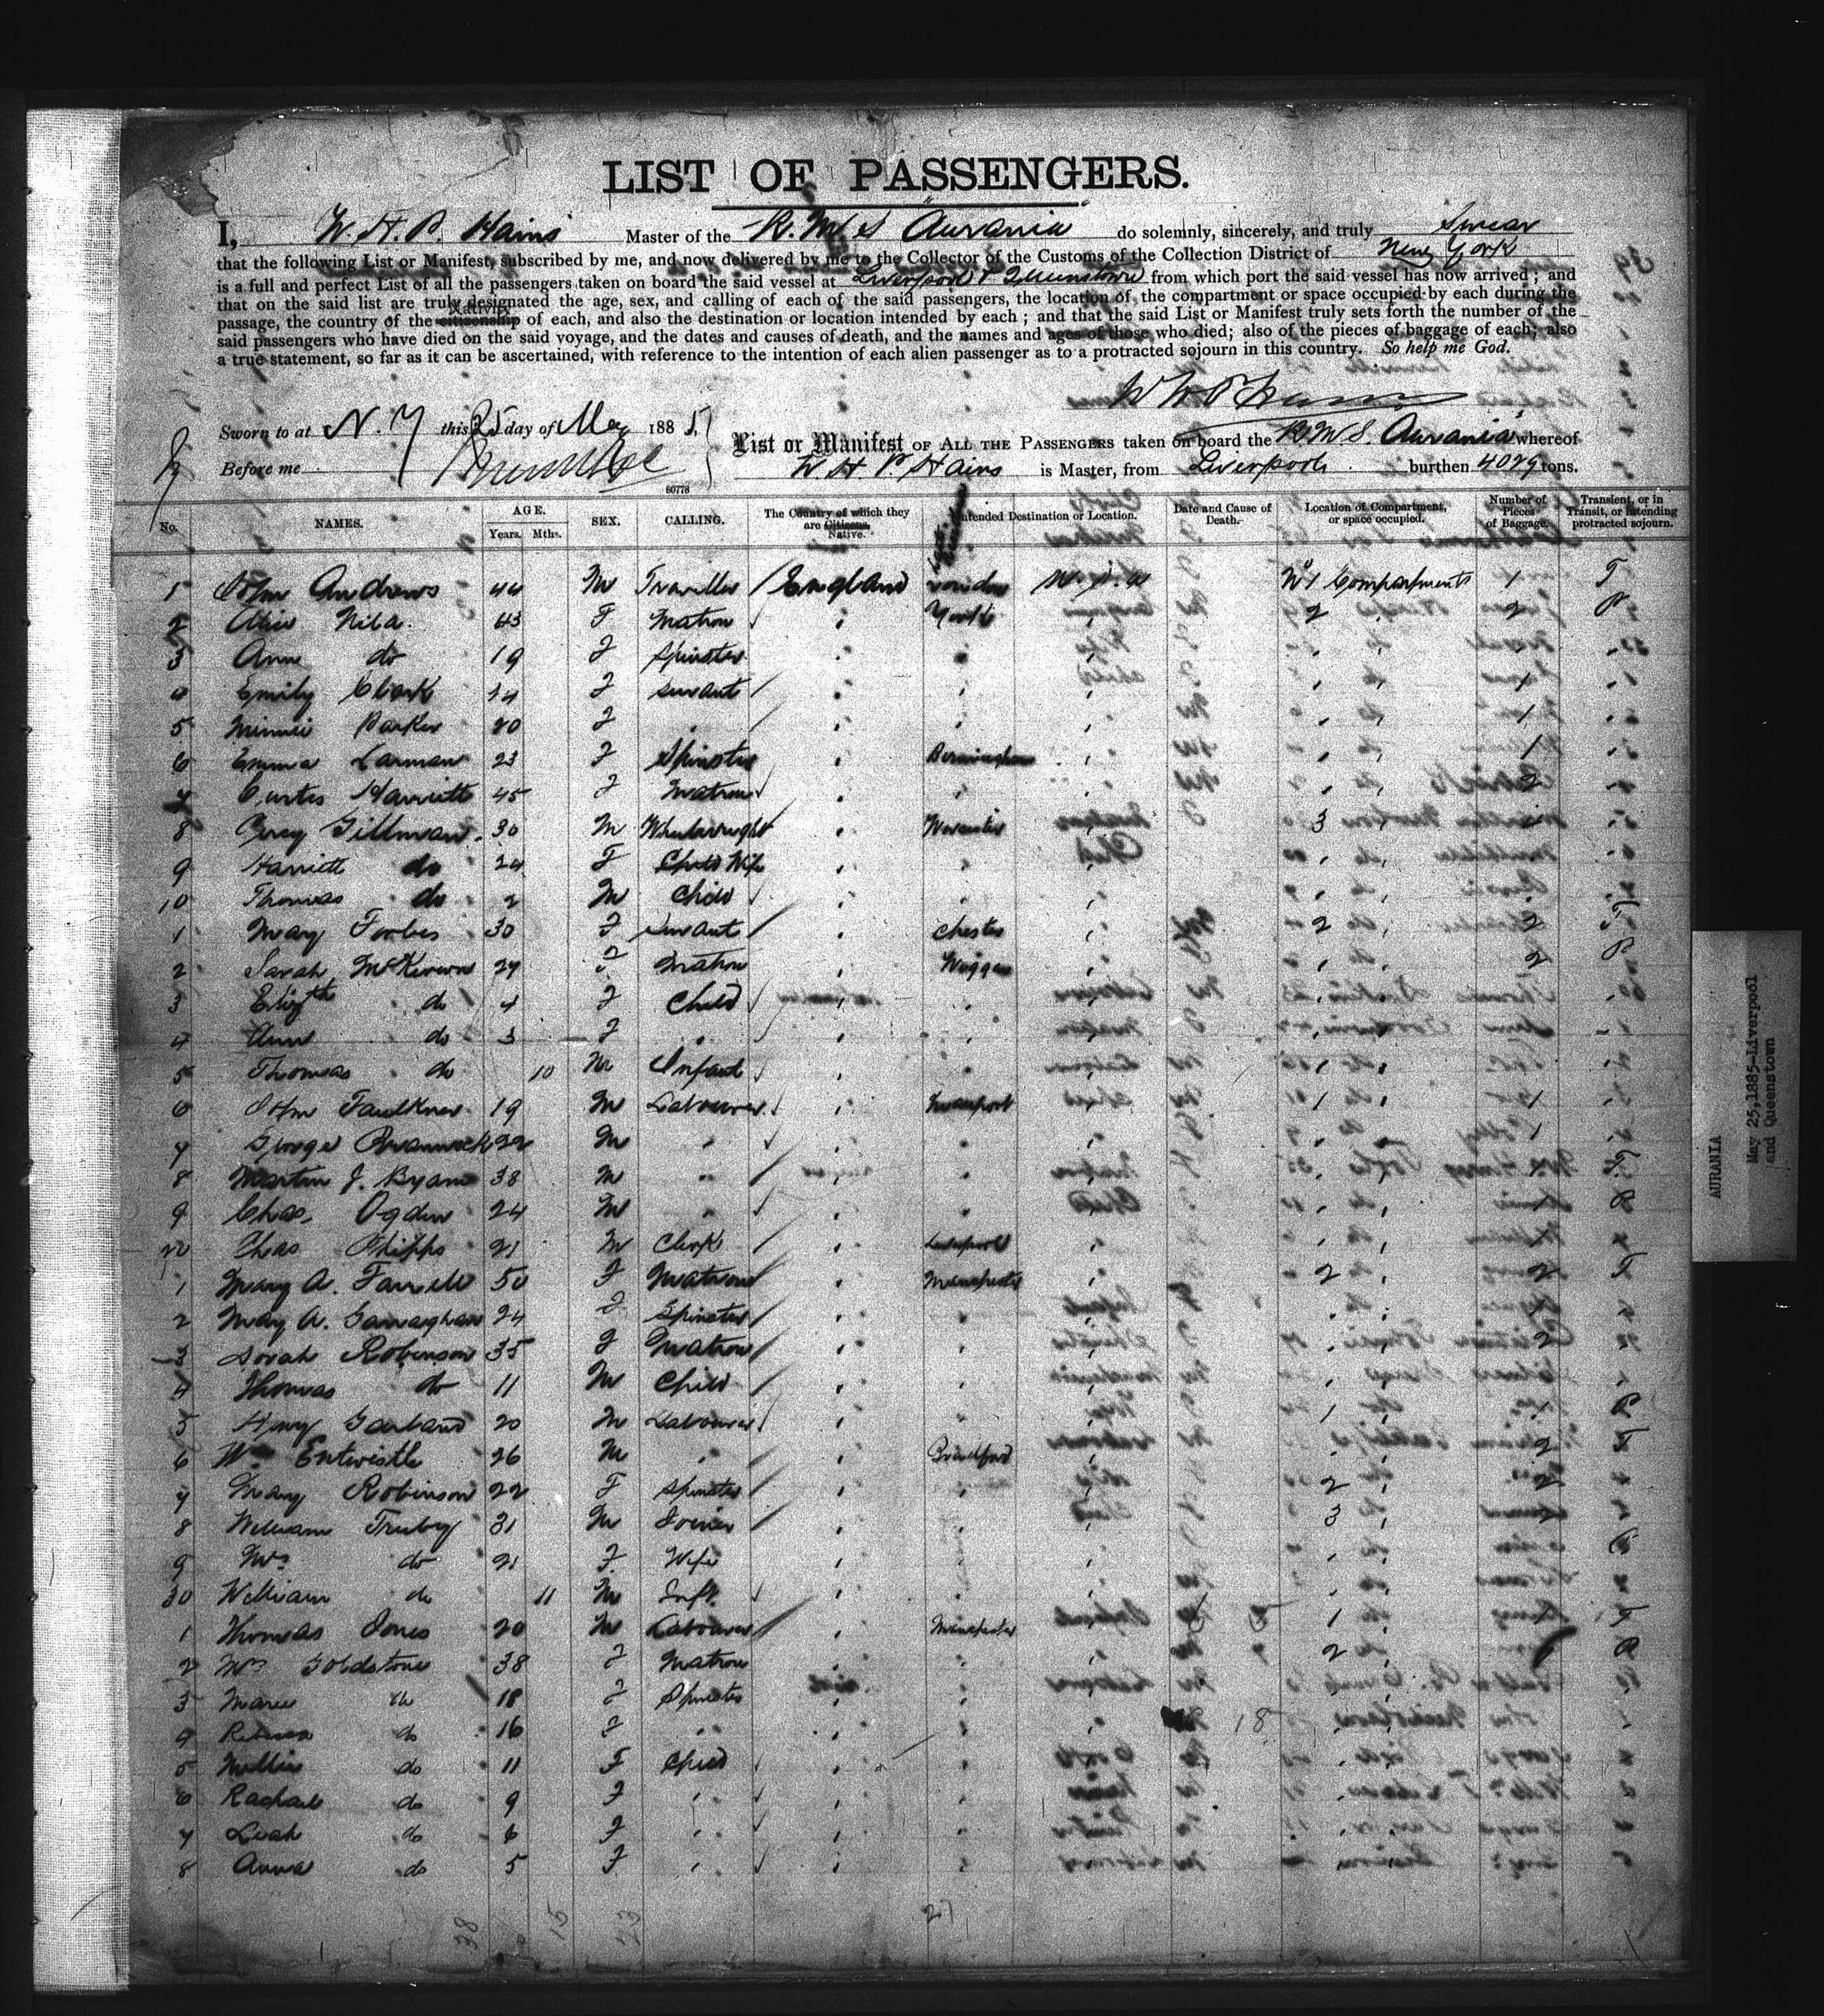 LIST OF PASSENGERS.
I, W. H. P. Hains Master of the R.M.S Aurania do solemnly, sincerely, and truly Swear
that the following List or Manifest, subscribed by me, and now delivered by me to the Collector of the Customs of the Collection District of New York
is a full and perfect List of all the passengers taken on board the said vessel at Liverpool & Queenstown from which port the said vessel has now arrived; and
that on the said list are truly designated the age, sex, and calling of each of the said passengers, the location of the compartment or space occupied by each during the
Nativity
passage, the country of the citizenship of each, and also the destination or location intended by each; and that the said List or Manifest truly sets forth the number of the
said passengers who have died on the said voyage, and the dates and causes of death, and the names and ages of those who died; also of the pieces of baggage of each; also
a true statement, so far as it can be ascertained, with reference to the intention of each alien passenger as to a protracted sojourn in this country. So help me God.
Sworn to at N. Y this 25 day of May 1885
List or Manifest OF ALL THE PASSENGERS taken on board the R.M.S. Aurania whereof
Before me
W. H. P. Hains is Master, from Liverpool burthen 4029 tons.
60778
No. NAMES. AGE. Years. Mths. SEX. CALLING. The Country of which they are Citizens. Native. Intended Destination or Location. Date and Cause of Death. Location of Compartment, or space occupied. Number of Pieces of Baggage. Transient, or in Transit, or intending protracted sojourn.
1 John Andrews 44 M Traveller England London U.S.A No 1 Compartment 1 T
2 Alice 43 F Matron " " 2 " 2 P
3 Ann do 19 F Spinster " " " " "
4 Emily Clark 14 F Servant " " " " 1
5 Minnie Parker 20 F " " " " " 1
6 Emma Larman 23 F Spinster " Birmingham " " 1
7 Curtis Harriett 45 F Matron " " " " 2
8 Percy Gillman 30 M Wheelwright " Worcester " 3 "
9 Harriett do 24 F Child Wife " " " "
10 Thomas do 2 M Child " " " "
1 Mary Forbes 30 F Servant " Chester " 2 " 2 T
2 Sarah McKeown 27 F Matron " Wiggan " " 2 P
3 Elizth do 4 F Child " " " "
4 Ann do 3 F " " " " "
5 Thomas do 10 M Infant " " " "
6 John Faulkner 19 M Labourer " " 1 " 1
7 George 22 M " " " " " 1
8 Martin J. Ryan 38 M " " " " " 1 T
9 Chas. Ogden 24 M " " " " " P
20 Chas Phipps 21 M Clerk " Liverpool " "
1 Mary A. Farrell 50 F Matron " Manchester " 2 " 2 T
2 Mary A. Garraghan 24 F Spinster " " " " 1
3 Sarah Robinson 35 F Matron " " " " 2
4 Thomas do 11 M Child " " " "
5 Henry Garland 20 M Labourer " " " 1 " 1 P
6 Wm Entwistle 26 M " " Bradford " " 2 T
7 Mary Robinson 22 F Spinster " " " 2 " 2
8 William Truby 31 M Joiner " " " 3 " 2
9 Mrs do 21 F Wife " " " "
30 William do 11 M Inft. " " " "
1 Thomas Jones 20 M Labourer " Manchester " 1 " 1 T
2 Mrs Goldstone 38 F Matron " " " 2 " P
3 Marie do 18 F Spinster " " " "
4 Rebecca do 16 F " " " " " 18
5 Millie do 11 F Child " " " "
6 Rachael do 9 F " " " " "
7 Leah do 6 F " " " " "
8 Anna do 5 F " " " " "
38 15 23 27
AURANIA
May 25,1885-Liverpool
and Queenstown